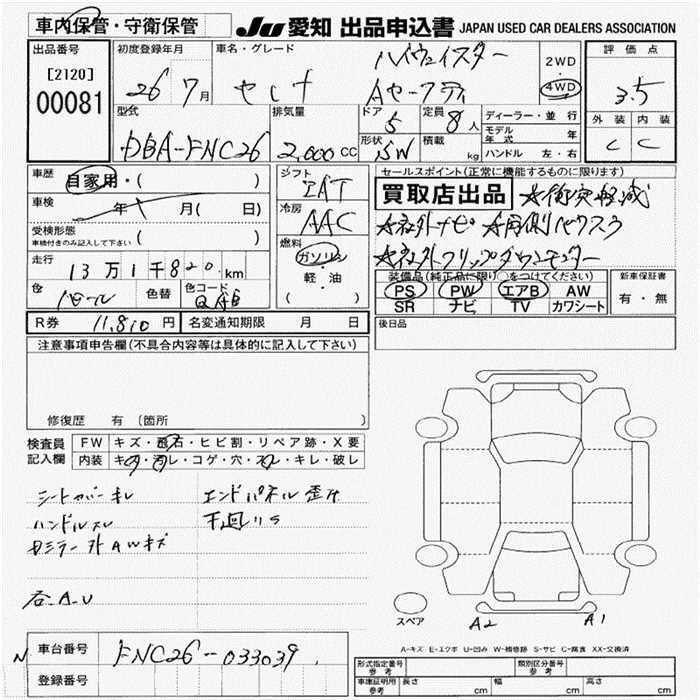 車内保管・守衛保管
JU 愛知 出品申込書 JAPAN USED CAR DEALERS ASSOCIATION
出品番号
[2120]
00081
初度登録年月
26 7月
車名・グレード
セレナ
ハイウェイスター
Aセーフティ
2WD
4WD
評価点
3.5
外装 内装
C C
型式
DBA-FNC26
排気量
2,000 CC
ドア
5
定員
8人
形状
SW
積載
kg
ディーラー・並行
モデル年式
ハンドル 左・右
車歴
自家用・( )
車検
年 月( 日)
受検形態
車検付きのみ記入して下さい ( )
走行
13万1千820km
色
パール
色替
色コード
QAB
シフト
IAT
冷房
AAC
燃料
ガソリン
軽・油
( )
セールスポイント(正常に機能するものに限ります)
買取店出品 ☆衝突軽減
☆社外ナビ ☆両側パワスラ
☆社外フリップダウンモニター
装備品(純正品に限り○をつけてください)
PS PW エアB AW
SR ナビ TV カワシート
新車保証書
有・無
R券 11,810円 名変通知期限 月 日
後日品
注意事項申告欄(不具合内容等は具体的に記入して下さい)
修復歴 有(箇所 )
検査員記入欄
FW キズ・飛石・ヒビ割・リペア跡・X要
内装 キズ・汚レ・コゲ・穴・スレ・キレ・破レ
シートカバーキレ
ハンドルスレ
エンドパネル歪ミ
下廻リS
ミラー AWキズ
各A.U
スペア
A2
A1
A-キズ E-エクボ U-凹み W-補修跡 S-サビ C-腐食 XX-交換済
車台番号
FNC26-033039
登録番号
形式指定番号
参考
類別区分番号
参考
車庫証明用
参考
長さ cm
幅 cm
高さ cm